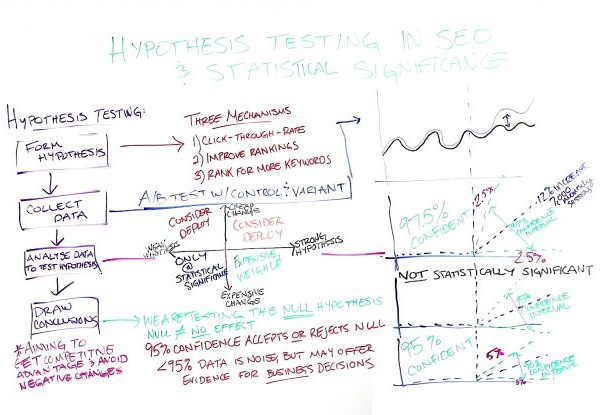 HYPOTHESIS TESTING IN SEO
& STATISTICAL SIGNIFICANCE
HYPOTHESIS TESTING:
FORM
HYPOTHESIS
COLLECT
DATA
ANALYSE DATA
TO TEST HYPOTHESIS
DRAW
CONCLUSIONS
*AIMING TO
GET COMPETITIVE
ADVANTAGE & AVOID
NEGATIVE CHANGES
THREE MECHANISMS
1) CLICK-THROUGH-RATE
2) IMPROVE RANKINGS
3) RANK FOR MORE KEYWORDS
A/B TEST W/ CONTROL & VARIANT
CHEAP
CHANGE
CONSIDER
DEPLOY
CONSIDER
DEPLOY
WEAK
HYPOTHESIS
STRONG
HYPOTHESIS
ONLY
@
STATISTICAL
SIGNIFICANCE
EXPENSIVE,
WEIGH UP
EXPENSIVE
CHANGE
WE ARE TESTING THE NULL HYPOTHESIS
NULL ≠ NO EFFECT
95% CONFIDENCE ACCEPTS OR REJECTS NULL
<95% DATA IS NOISE, BUT MAY OFFER
EVIDENCE FOR BUSINESS DECISIONS
97.5%
CONFIDENT
2.5%
12% INCREASE
CONFIDENCE
INTERVAL
2.5%
NOT STATISTICALLY SIGNIFICANT
95%
CONFIDENT
5%
CONFIDENCE
INTERVAL
90% CONFIDENCE
INTERVAL
5%